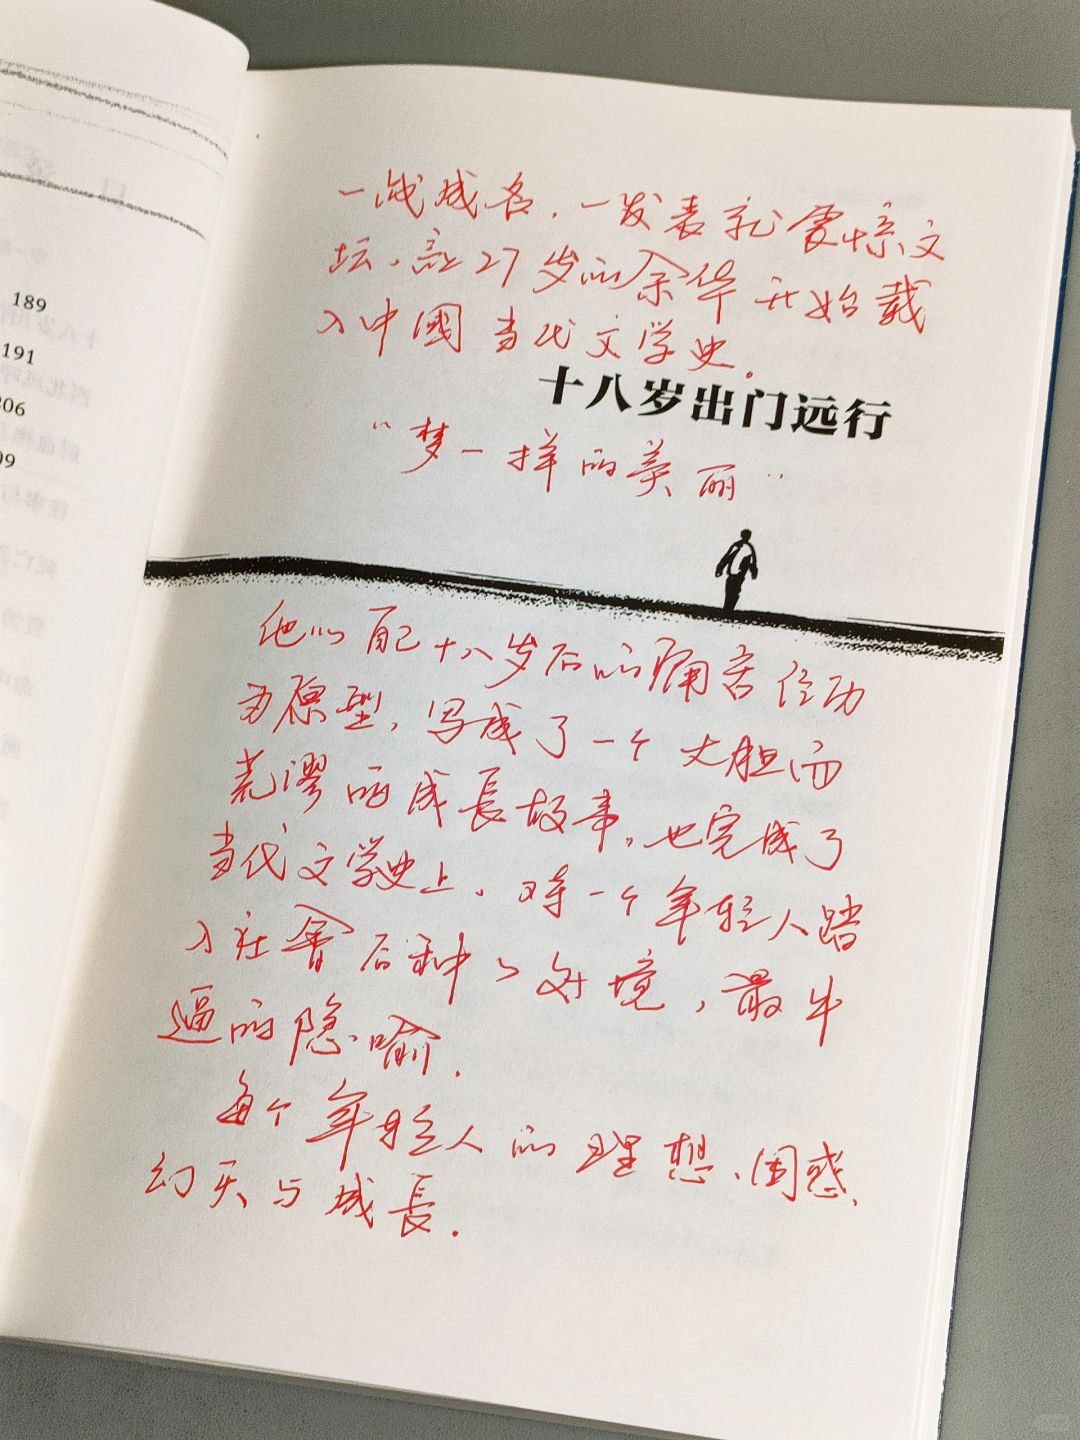 189
191
306
09
一战成名，一发表就震惊文
坛，让27岁的余华开始载
入中國当代文学史。
十八岁出门远行
“梦一样的美丽”
他以自己十八岁后的痛苦经历
为原型，写成了一个大胆而
荒谬的成長故事，也完成了
当代文学史上，对一个年轻人踏
入社會后种々处境，最牛
逼的隐喻。
每个年轻人的理想、困惑、
幻灭与成長。